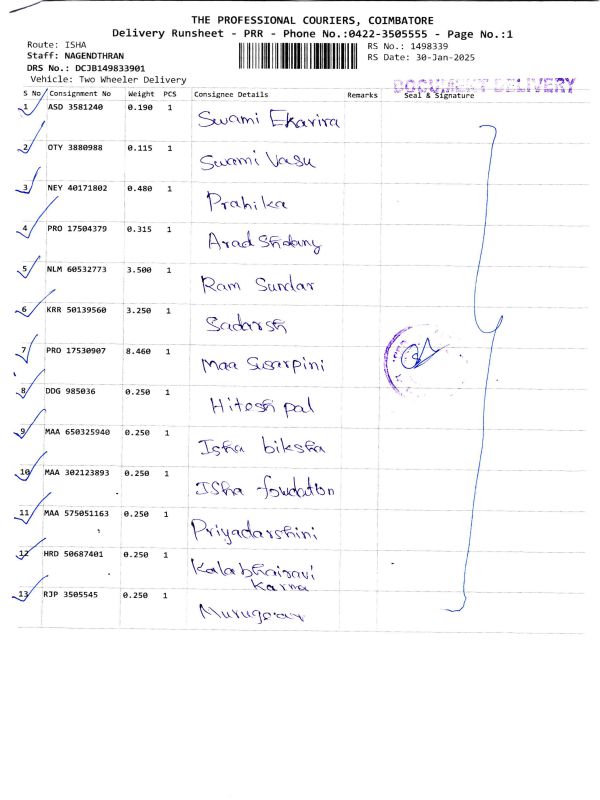 THE PROFESSIONAL COURIERS, COIMBATORE
Delivery Runsheet - PRR - Phone No.:0422-3505555 - Page No.:1
Route: ISHA
RS No.: 1498339
Staff: NAGENDTHRAN
RS Date: 30-Jan-2025
DRS No.: DCJB149833901
Vehicle: Two Wheeler Delivery
DOCUMENT DELIVERY
S No Consignment No Weight PCS Consignee Details Remarks Seal & Signature
1 ASD 3581240 0.190 1 Swami Ekavira
2 OTY 3880988 0.115 1 Swami Vasu
3 NEY 40171802 0.480 1 Prahika
4 PRO 17504379 0.315 1 Arad
5 NLM 60532773 3.500 1 Ram Sundar
6 KRR 50139560 3.250 1 Sadarsh
7 PRO 17530907 8.460 1 Maa Susarpini
8 DDG 985036 0.250 1 Hitesh pal
9 MAA 650325940 0.250 1 Isha biksha
10 MAA 302123893 0.250 1 Isha foudation
11 MAA 575051163 0.250 1 Priyadarshini
12 HRD 50687401 0.250 1 Kalabhairavi
Karna
13 RJP 3505545 0.250 1